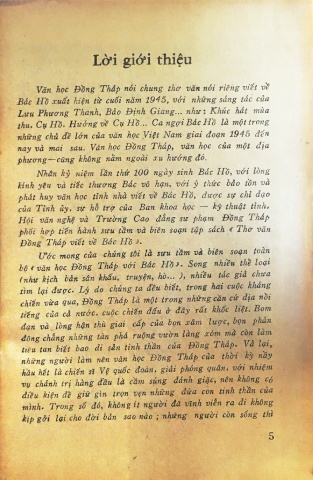 Lời giới thiệu
Văn học Đồng Tháp nói chung thơ văn nói riêng viết về
Bác Hồ xuất hiện từ cuối năm 1945, với những sáng tác của
Lưu Phương Thanh, Bảo Định Giang... như : Khúc hát mùa
thu. Cụ Hồ. Hướng về Cụ Hồ... Ca ngợi Bác Hồ là một trong
những chủ đề lớn của văn học Việt Nam giai đoạn 1945 đến
nay và mai sau. Văn học Đồng Tháp, văn học của một địa
phương—cũng không nằm ngoài xu hướng đó.
Nhân kỷ niệm lần thứ 100 ngày sinh Bác Hồ, với lòng
kính yêu và tiếc thương Bác vô hạn, với ý thức bảo tồn và
phát huy văn học tỉnh nhà viết về Bác Hồ, được sự chỉ đạo
của Tỉnh ủy, sự hỗ trợ của Ban khoa học — kỹ thuật tỉnh.
Hội văn nghệ và Trường Cao đẳng sư phạm Đồng Tháp
phối hợp tiến hành sưu tầm và biên soạn tập sách « Thơ văn
Đồng Tháp viết về Bác Hồ ».
Ước mong của chúng tôi là sưu tầm và biên soạn toàn
bộ « văn học Đồng Tháp với Bác Hồ ». Song nhiều thể loại
(như kịch bản sân khấu, truyện, hò... ), nhiều tác giả chưa
tìm lại được. Lý do chúng ta đều biết, trong hai cuộc kháng
chiến vừa qua, Đồng Tháp là một trong những căn cứ địa nổi
tiếng của cả nước. cuộc chiến đấu ở đây rất khốc liệt. Bom
đạn và lòng hận thù giai cấp của bọn xâm lược, bọn phản
động chẳng những tàn phá ruộng vườn làng xóm mà còn làm
tiêu tan biết bao di sản tinh thần của Đồng Tháp. Vả lại,
những người làm nên văn học Đồng Tháp của thời kỳ này
hầu hết là chiến sĩ Vệ quốc đoàn, giải phóng quân. với nhiệm
vụ chánh trị hàng đầu là cầm súng đánh giặc, nên không có
điều kiện để giữ gìn trọn vẹn những đứa con tinh thần của
mình. Trong số đó, không ít người đã vĩnh viễn ra đi không
kịp gởi lại cho đời bản sao nào ; những người còn sống thì
5